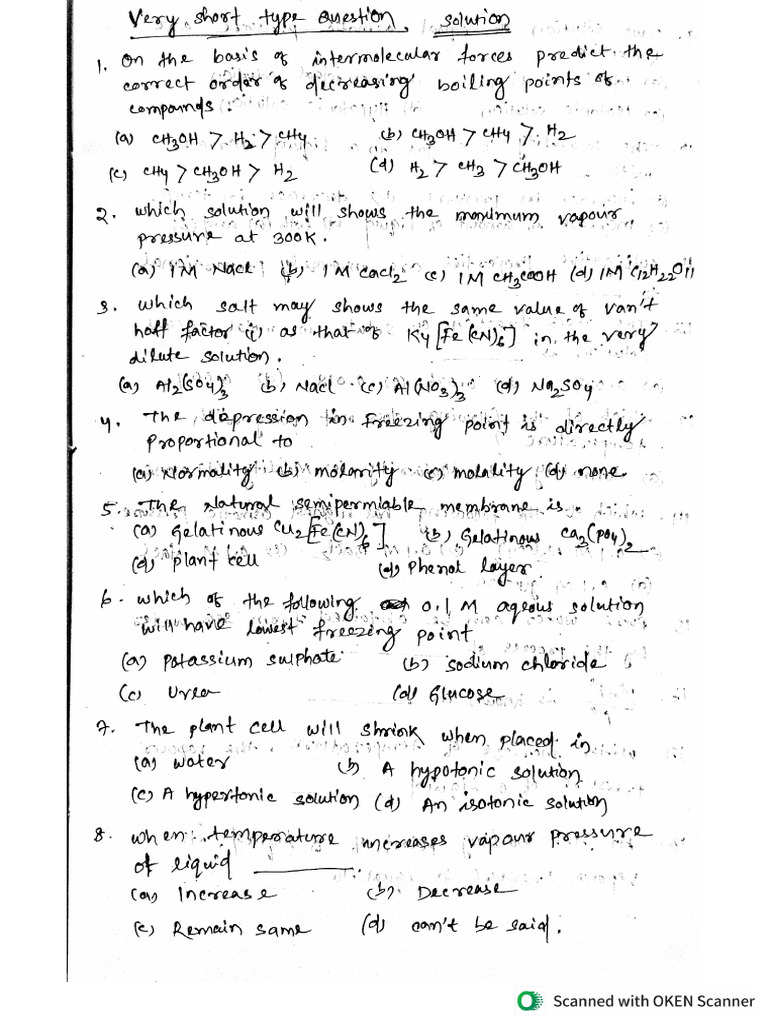 Very short type Question solution
1. On the basis of intermolecular forces predict the
correct order of decreasing boiling points of
compounds.
(a) CH3OH > H2 > CH4 (b) CH3OH > CH4 > H2
(c) CH4 > CH3OH > H2 (d) H2 > CH3 > CH3OH
2. which solution will shows the maximum vapour
pressure at 300K.
(a) 1M Nacl (b) 1M cacl2 (c) 1M CH3COOH (d) 1M C12H22O11
3. which salt may shows the same value of van't
half factor (i) as that of K4[Fe(CN)6] in the very
dilute solution.
(a) Al2(SO4)3 (b) Nacl (c) Al(NO3)3 (d) Na2SO4
4. The depression in freezing point is directly
proportional to
(a) Normality (b) molarity (c) molality (d) none
5. The Natural semipermiable membrane is.
(a) Gelatinous Cu2[Fe(CN)6] (b) Gelatinous Ca3(PO4)2
(d) plant cell (d) Phenol layer
6. which of the following 0.1 M aqeous solution
will have lowest freezing point
(a) Potassium sulphate (b) sodium chloride
(c) Urea (d) Glucose
7. The plant cell will shrink when placed in
(a) water (b) A hypotonic solution
(c) A hypertonic solution (d) An isotonic solution
8. when temperature increases vapour pressure
of liquid ________.
(a) Increase (b) Decrease
(c) Remain same (d) can't be said.
Scanned with OKEN Scanner